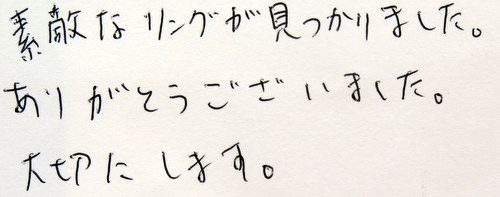 素敵なリングが見つかりました。
ありがとうございました。
大切にします。